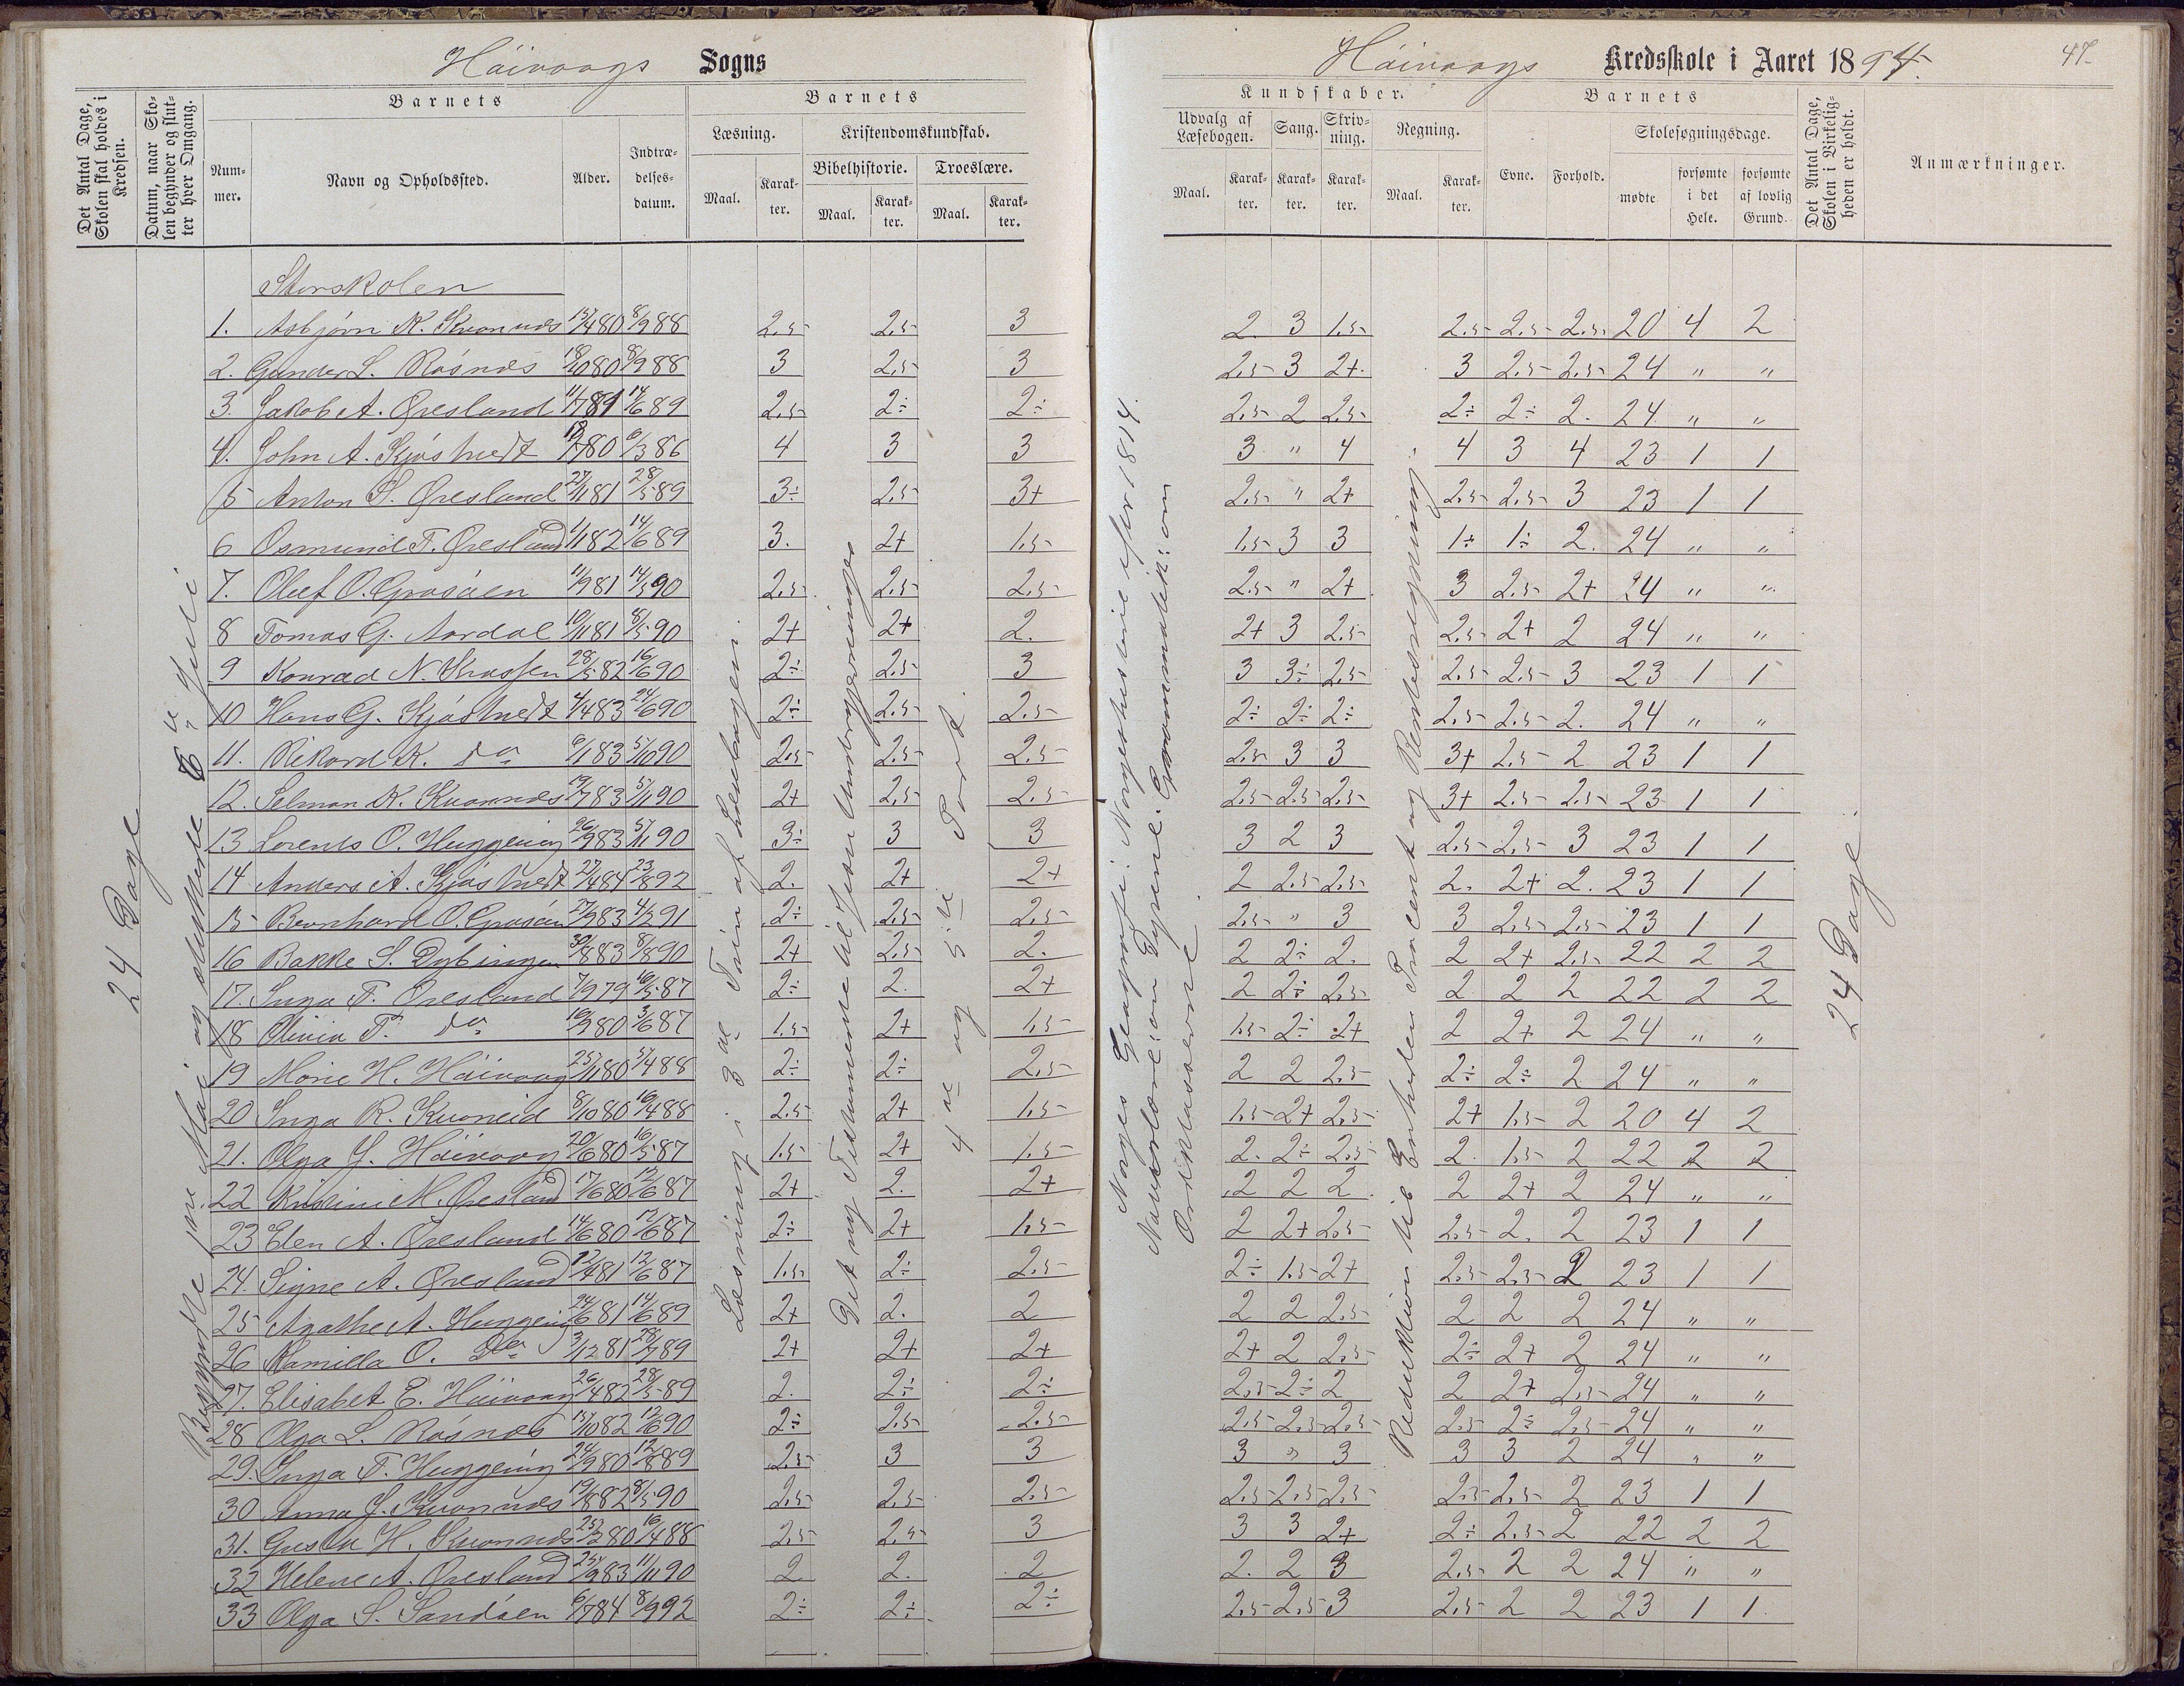 Høivaags Sogns
Høivaags Kredsskole i Aaret 1894.
47
Det Antal Dage, Skolen skal holdes i Kredsen.
Datum, maar Skolen begynder og slutter hver Omgang.
Barnets
Nummer.
Navn og Opholdssted.
Alder.
Indtrædelsesdatum.
Barnets
Læsning.
Maal.
Karakter.
Kristendomskundskab.
Bibelhistorie.
Maal.
Karakter.
Troeslære.
Maal.
Karakter.
Kundskaber.
Udvalg af Læsebogen.
Maal.
Karakter.
Sang.
Karakter.
Skrivning.
Karakter.
Regning.
Maal.
Karakter.
Barnets
Evne.
Forhold.
Skolesøgningsdage.
mødte
forsømte i det Hele.
forsømte af lovlig Grund.
Det Antal Dage, Skolen i Virkeligheden er holdt.
Anmærkninger.
24 Dage
Læsning i 3die af Læsebogen.
4de og 5te Part.
Norges Geografi. Norgeshistorie efter 1814.
Naturlære: om Dyrene. Grammatik: om Ordklasserne.
Reduktion til Enheden Procent og Rentesregning.
24 Dage.
Storskolen
1. Asbjørn K. Kvannes 15/4 80 8/9 88 2.5 2.5 3 2. 3 1.5 2.5 2.5 2.5 20 4 2
2. Gunder L. Røsnes 18/10 80 8/9 88 3 2.5 3 2.5 3 2+ 3 2.5 2.5 24 " "
3. Jakob A. Øresland 11/7 81 14/6 89 2.5 2÷ 2÷ 2.5 2 2.5 2÷ 2÷ 2. 24 " "
4. John A. Kjøstvedt 80 6/3 86 4 3 3 3 " 4 4 3 4 23 1 1
5 Anton S. Øresland 27/11 81 28/5 89 3÷ 2.5 3+ 2.5 " 2+ 2.5 2.5 3 23 1 1
6 Osmund T. Øresland 1/1 82 14/6 89 3. 2+ 1.5 1.5 3 3 1÷ 1÷ 2. 24 " "
7. Oluf O. Grosåen 11/9 81 14/5 90 2.5 2.5 2.5 2.5 " 2+ 3 2.5 2+ 24 " "
8 Tomas G. Aardal 10/11 81 8/5 90 2+ 2+ 2. 2+ 3 2.5 2.5 2+ 2 24 " "
9 Konrad N. 28/5 82 16/6 90 2÷ 2.5 3 3 3÷ 2.5 2.5 2.5 3 23 1 1
10 Hans G. Kjøstvedt 4/4 83 24/6 90 2÷ 2.5 2.5 2÷ 2÷ 2÷ 2.5 2.5 2. 24 " "
11. Rikard K. do 6/1 83 5/10 90 2.5 2.5 2.5 2.5 3 3 3+ 2.5 2 23 1 1
12. Selman K. Kvannes 19/7 83 5/11 90 2+ 2.5 2.5 2.5 2.5 2.5 3+ 2.5 2.5 23 1 1
13 Lorents O. Huggening 26/9 83 5/11 90 3÷ 3 3 3 2 3 2.5 2.5 3 23 1 1
14 Anders A. Kjøstvedt 27/4 84 23/8 92 2. 2+ 2+ 2 2.5 2.5 2. 2+ 2. 23 1 1
15 Bernhard O. Grosåen 27/9 83 4/2 91 2÷ 2.5 2.5 2.5 " 3 3 2.5 2.5 23 1 1
16 Bakke S. Dybingen 30/8 83 8/8 90 2+ 2.5 2. 2 2÷ 2. 2 2+ 2.5 22 2 2
17. Inga T. Øresland 7/9 79 16/5 87 2÷ 2. 2+ 2 2÷ 2.5 2 2 2 22 2 2
18 Olivia T. do 16/9 80 3/6 87 1.5 2+ 1.5 1.5 2÷ 2+ 2 2+ 2 24 " "
19 Marie H. Høivaag 25/11 80 5/4 88 2÷ 2÷ 2.5 2 2 2.5 2÷ 2÷ 2 24 " "
20 Inga R. Kvaneid 8/10 80 16/4 88 2.5 2+ 1.5 1.5 2+ 2.5 2+ 1.5 2 20 4 2
21. Olga J. Høivaag 20/6 80 16/5 87 1.5 2+ 1.5 2. 2÷ 2.5 2. 1.5 2 22 2 2
22 Kristine M. Øresland 17/6 80 12/6 87 2+ 2. 2+ 2 2 2 2 2+ 2 24 " "
23 Elen A. Øresland 14/6 80 12/6 87 2÷ 2+ 1.5 2 2+ 2.5 2.5 2. 2 23 1 1
24. Signe A. Øresland 12/4 81 12/6 87 1.5 2÷ 2.5 2÷ 1.5 2+ 2.5 2.5 2 23 1 1
25 Agathe A. Huggening 24/6 81 14/6 89 2+ 2. 2 2 2 2.5 2 2 2 24 " "
26 Kamilla O. do 3/12 81 28/7 89 2+ 2+ 2+ 2+ 2 2.5 2÷ 2+ 2 24 " "
27. Elisabet E. Høivaag 26/4 82 28/5 89 2. 2÷ 2÷ 2.5 2÷ 2 2 2+ 2.5 24 " "
28 Olga L. Røsnes 15/10 82 12/6 90 2÷ 2.5 2.5 2.5 2.5 2.5 2.5 2÷ 2.5 24 " "
29. Inga T. Huggening 24/9 80 12/8 89 2.5 3 3 3 " 3 3 3 2 24 " "
30 Anna J. Kvannes 19/8 82 8/5 90 2.5 2.5 2.5 2.5 2.5 2.5 2.5 2.5 2 23 1 1
31. Gusta H. Kvannes 25/2 80 16/4 88 2.5 2.5 3 3 3 2+ 2÷ 2.5 2 22 2 2
32 Helene A. Øresland 25/9 83 11/11 90 2. 2. 2 2. 2 3 2.5 2 2 24 " "
33 Olga S. Sandåen 6/7 84 8/9 92 2÷ 2÷ 2÷ 2.5 2.5 3 2.5 2 2 23 1 1